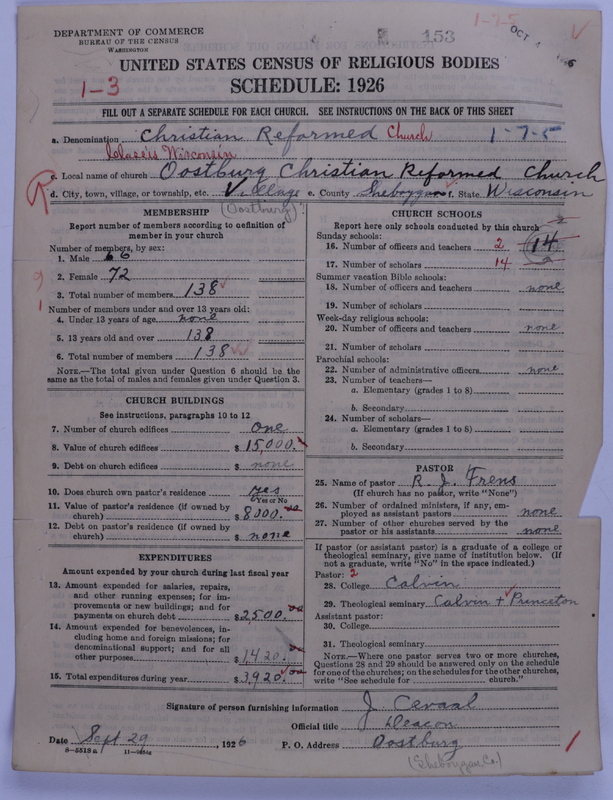 DEPARTMENT OF COMMERCE
BUREAU OF THE CENSUS
WASHINGTON
153
1-7-5
OCT
UNITED STATES CENSUS OF RELIGIOUS BODIES
1-3
SCHEDULE: 1926
FILL OUT A SEPARATE SCHEDULE FOR EACH CHURCH. SEE INSTRUCTIONS ON THE BACK OF THIS SHEET
a. Denomination Christian Reformed Church 1-7-5
Classis Wisconsin
c. Local name of church Oostburg Christian Reformed Church
d. City, town, village, or township, etc. Village e. County Sheboygan f. State Wisconsin
(Oostburg)
MEMBERSHIP
Report number of members according to definition of
member in your church
Number of members, by sex:
1. Male 66
2. Female 72
3. Total number of members 138
Number of members under and over 13 years old:
4. Under 13 years of age none
5. 13 years old and over 138
6. Total number of members 138
NOTE.—The total given under Question 6 should be the
same as the total of males and females given under Question 3.
CHURCH BUILDINGS
See instructions, paragraphs 10 to 12
7. Number of church edifices one
8. Value of church edifices $ 15,000.
9. Debt on church edifices $ none
10. Does church own pastor's residence yes
Yes or No
11. Value of pastor's residence (if owned by
church) $ 8000.
12. Debt on pastor's residence (if owned by
church) $ none
EXPENDITURES
Amount expended by your church during last fiscal year
13. Amount expended for salaries, repairs,
and other running expenses; for im-
provements or new buildings; and for
payments on church debt $ 2500.
14. Amount expended for benevolences, in-
cluding home and foreign missions; for
denominational support; and for all
other purposes $ 1,420.
15. Total expenditures during year $ 3,920.
CHURCH SCHOOLS
Report here only schools conducted by this church
Sunday schools:
16. Number of officers and teachers 2 14
17. Number of scholars 14
Summer vacation Bible schools:
18. Number of officers and teachers none
19. Number of scholars
Week-day religious schools:
20. Number of officers and teachers none
21. Number of scholars
Parochial schools:
22. Number of administrative officers none
23. Number of teachers—
a. Elementary (grades 1 to 8)
b. Secondary
24. Number of scholars—
a. Elementary (grades 1 to 8)
b. Secondary
PASTOR
25. Name of pastor R. J. Frens
(If church has no pastor, write "None")
26. Number of ordained ministers, if any, em-
ployed as assistant pastors none
27. Number of other churches served by the
pastor or his assistants none
If pastor (or assistant pastor) is a graduate of a college or
theological seminary, give name of institution below. (If
not a graduate, write "No" in the space indicated.)
Pastor: 2
28. College Calvin
29. Theological seminary Calvin + Princeton
Assistant pastor:
30. College
31. Theological seminary
NOTE.—Where one pastor serves two or more churches,
Questions 28 and 29 should be answered only on the schedule
for one of the churches; on the schedules for the other churches,
write "See schedule for church."
Signature of person furnishing information J.
Official title Deacon
Date Sept 29, 1926 P. O. Address Oostburg
8-5518a
(Sheboygan Co.)